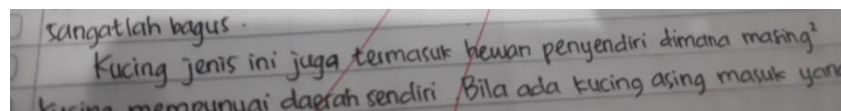 sangatlah bagus.
Kucing jenis ini juga termasuk hewan penyendiri dimana masing²
kucing mempunyai daerah sendiri. Bila ada kucing asing masuk yang